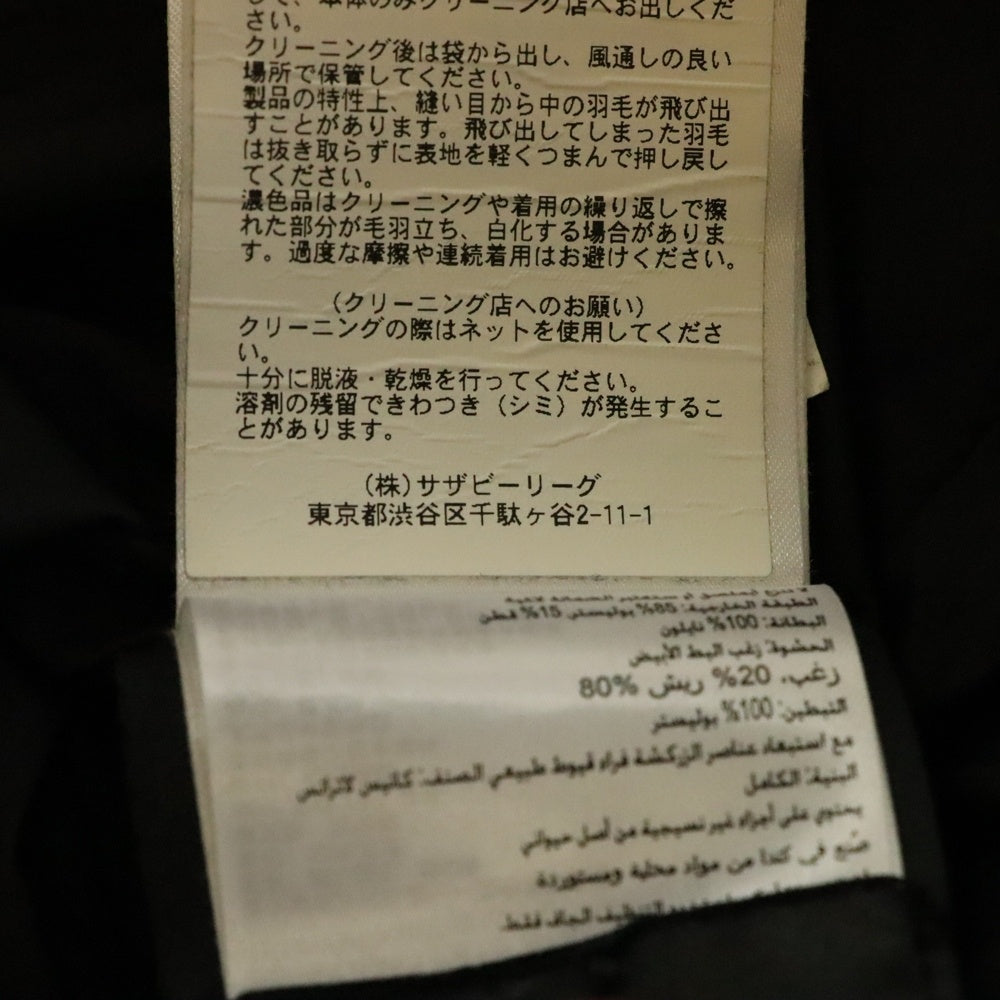 して、本体のみクリーニング店へお出しくだ
さい。
クリーニング後は袋から出し、風通しの良い
場所で保管してください。
製品の特性上、縫い目から中の羽毛が飛び出
すことがあります。飛び出してしまった羽毛
は抜き取らずに表地を軽くつまんで押し戻し
てください。
濃色品はクリーニングや着用の繰り返しで擦
れた部分が毛羽立ち、白化する場合がありま
す。過度な摩擦や連続着用はお避けください。
(クリーニング店へのお願い)
クリーニングの際はネットを使用してくださ
い。
十分に脱液・乾燥を行ってください。
溶剤の残留できわつき（シミ）が発生するこ
とがあります。
(株)サザビーリーグ
東京都渋谷区千駄ヶ谷2-11-1
الطبقة الخارجية: 85% بوليستر 15% قطن
البطانة: 100% نايلون
الحشوة: زغب البط الأبيض
زغب، 20% ريش 80%
التبطين: 100% بوليستر
مع استبعاد عناصر الزركشة فراء قيوط طبيعي الصنف: كانيس لاترانس
البنية: الكامل
يحتوي على أجزاء غير نسيجية من أصل حيواني
صُنع في كندا من مواد محلية ومستوردة
التنظيف الجاف فقط.